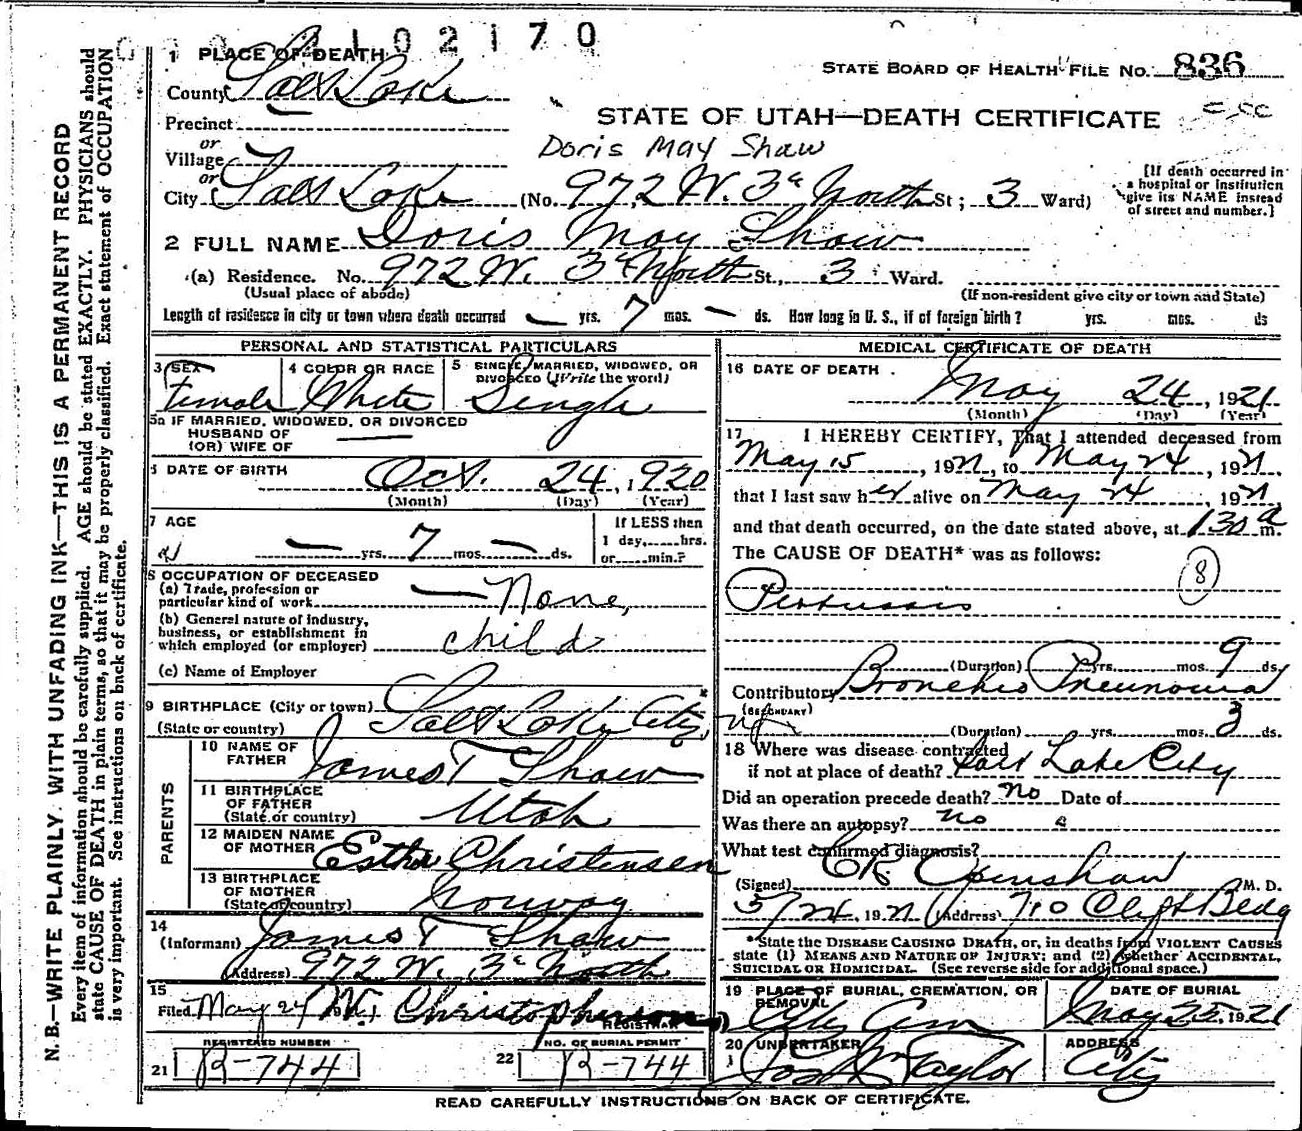 2102170
1 PLACE OF DEATH
STATE BOARD OF HEALTH FILE No. 836
County Salt Lake
STATE OF UTAH—DEATH CERTIFICATE
Precinct
or
Doris May Shaw
Village
or
City Salt Lake (No. 972 W. 3d North St; 3 Ward)
[If death occurred in
a hospital or institution
give its NAME instead
of street and number.]
2 FULL NAME Doris May Shaw
(a) Residence. No. 972 W. 3d North St., 3 Ward.
(Usual place of abode) (If non-resident give city or town and State)
Length of residence in city or town where death occurred — yrs. 7 mos. — ds. How long in U. S., if of foreign birth? yrs. mos. ds
PERSONAL AND STATISTICAL PARTICULARS
3 SEX 4 COLOR OR RACE 5 SINGLE, MARRIED, WIDOWED, OR
DIVORCED (Write the word)
Female White Single
5a IF MARRIED, WIDOWED, OR DIVORCED
HUSBAND OF
(OR) WIFE OF —
6 DATE OF BIRTH Oct. 24, 1920
(Month) (Day) (Year)
7 AGE
— yrs. 7 mos. — ds.
If LESS then
1 day, hrs.
or min.?
8 OCCUPATION OF DECEASED
(a) Trade, profession or
particular kind of work — None,
(b) General nature of industry,
business, or establishment in
which employed (or employer) child
(c) Name of Employer
9 BIRTHPLACE (City or town) Salt Lake City
(State or country)
PARENTS
10 NAME OF
FATHER James T Shaw
11 BIRTHPLACE
OF FATHER
(State or country) Utah
12 MAIDEN NAME
OF MOTHER Esther Christensen
13 BIRTHPLACE
OF MOTHER
(State or country) Norway
14
(Informant) James T Shaw
(Address) 972 W. 3d North
15
Filed May 24 Christopherson
REGISTRAR
REGISTERED NUMBER NO. OF BURIAL PERMIT
21 R-744 22 R-744
MEDICAL CERTIFICATE OF DEATH
16 DATE OF DEATH May 24, 1921
(Month) (Day) (Year)
17 I HEREBY CERTIFY, That I attended deceased from
May 15, 1921, to May 24, 1921,
that I last saw her alive on May 24, 1921
and that death occurred, on the date stated above, at 130 a m.
The CAUSE OF DEATH* was as follows:
8
Pertussis
(Duration) yrs. mos. 9 ds.
Contributory Broncho Pneumonia
(SECONDARY)
(Duration) yrs. mos. 3 ds.
18 Where was disease contracted
if not at place of death? Salt Lake City
Did an operation precede death? No Date of
Was there an autopsy? no
What test confirmed diagnosis?
(Signed) Openshaw M. D.
5/24, 1921 (Address) 710 Clift Bldg
*State the DISEASE CAUSING DEATH, or, in deaths from VIOLENT CAUSES
state (1) MEANS AND NATURE OF INJURY; and (2) whether ACCIDENTAL,
SUICIDAL OR HOMICIDAL. (See reverse side for additional space.)
19 PLACE OF BURIAL, CREMATION, OR
REMOVAL
City Cem
DATE OF BURIAL
May 25, 1921
20 UNDERTAKER
Taylor
ADDRESS
City
READ CAREFULLY INSTRUCTIONS ON BACK OF CERTIFICATE.
N. B.—WRITE PLAINLY, WITH UNFADING INK—THIS IS A PERMANENT RECORD
Every item of information should be carefully supplied. AGE should be stated EXACTLY. PHYSICIANS should
state CAUSE OF DEATH in plain terms, so that it may be properly classified. Exact statement of OCCUPATION
is very important. See instructions on back of certificate.